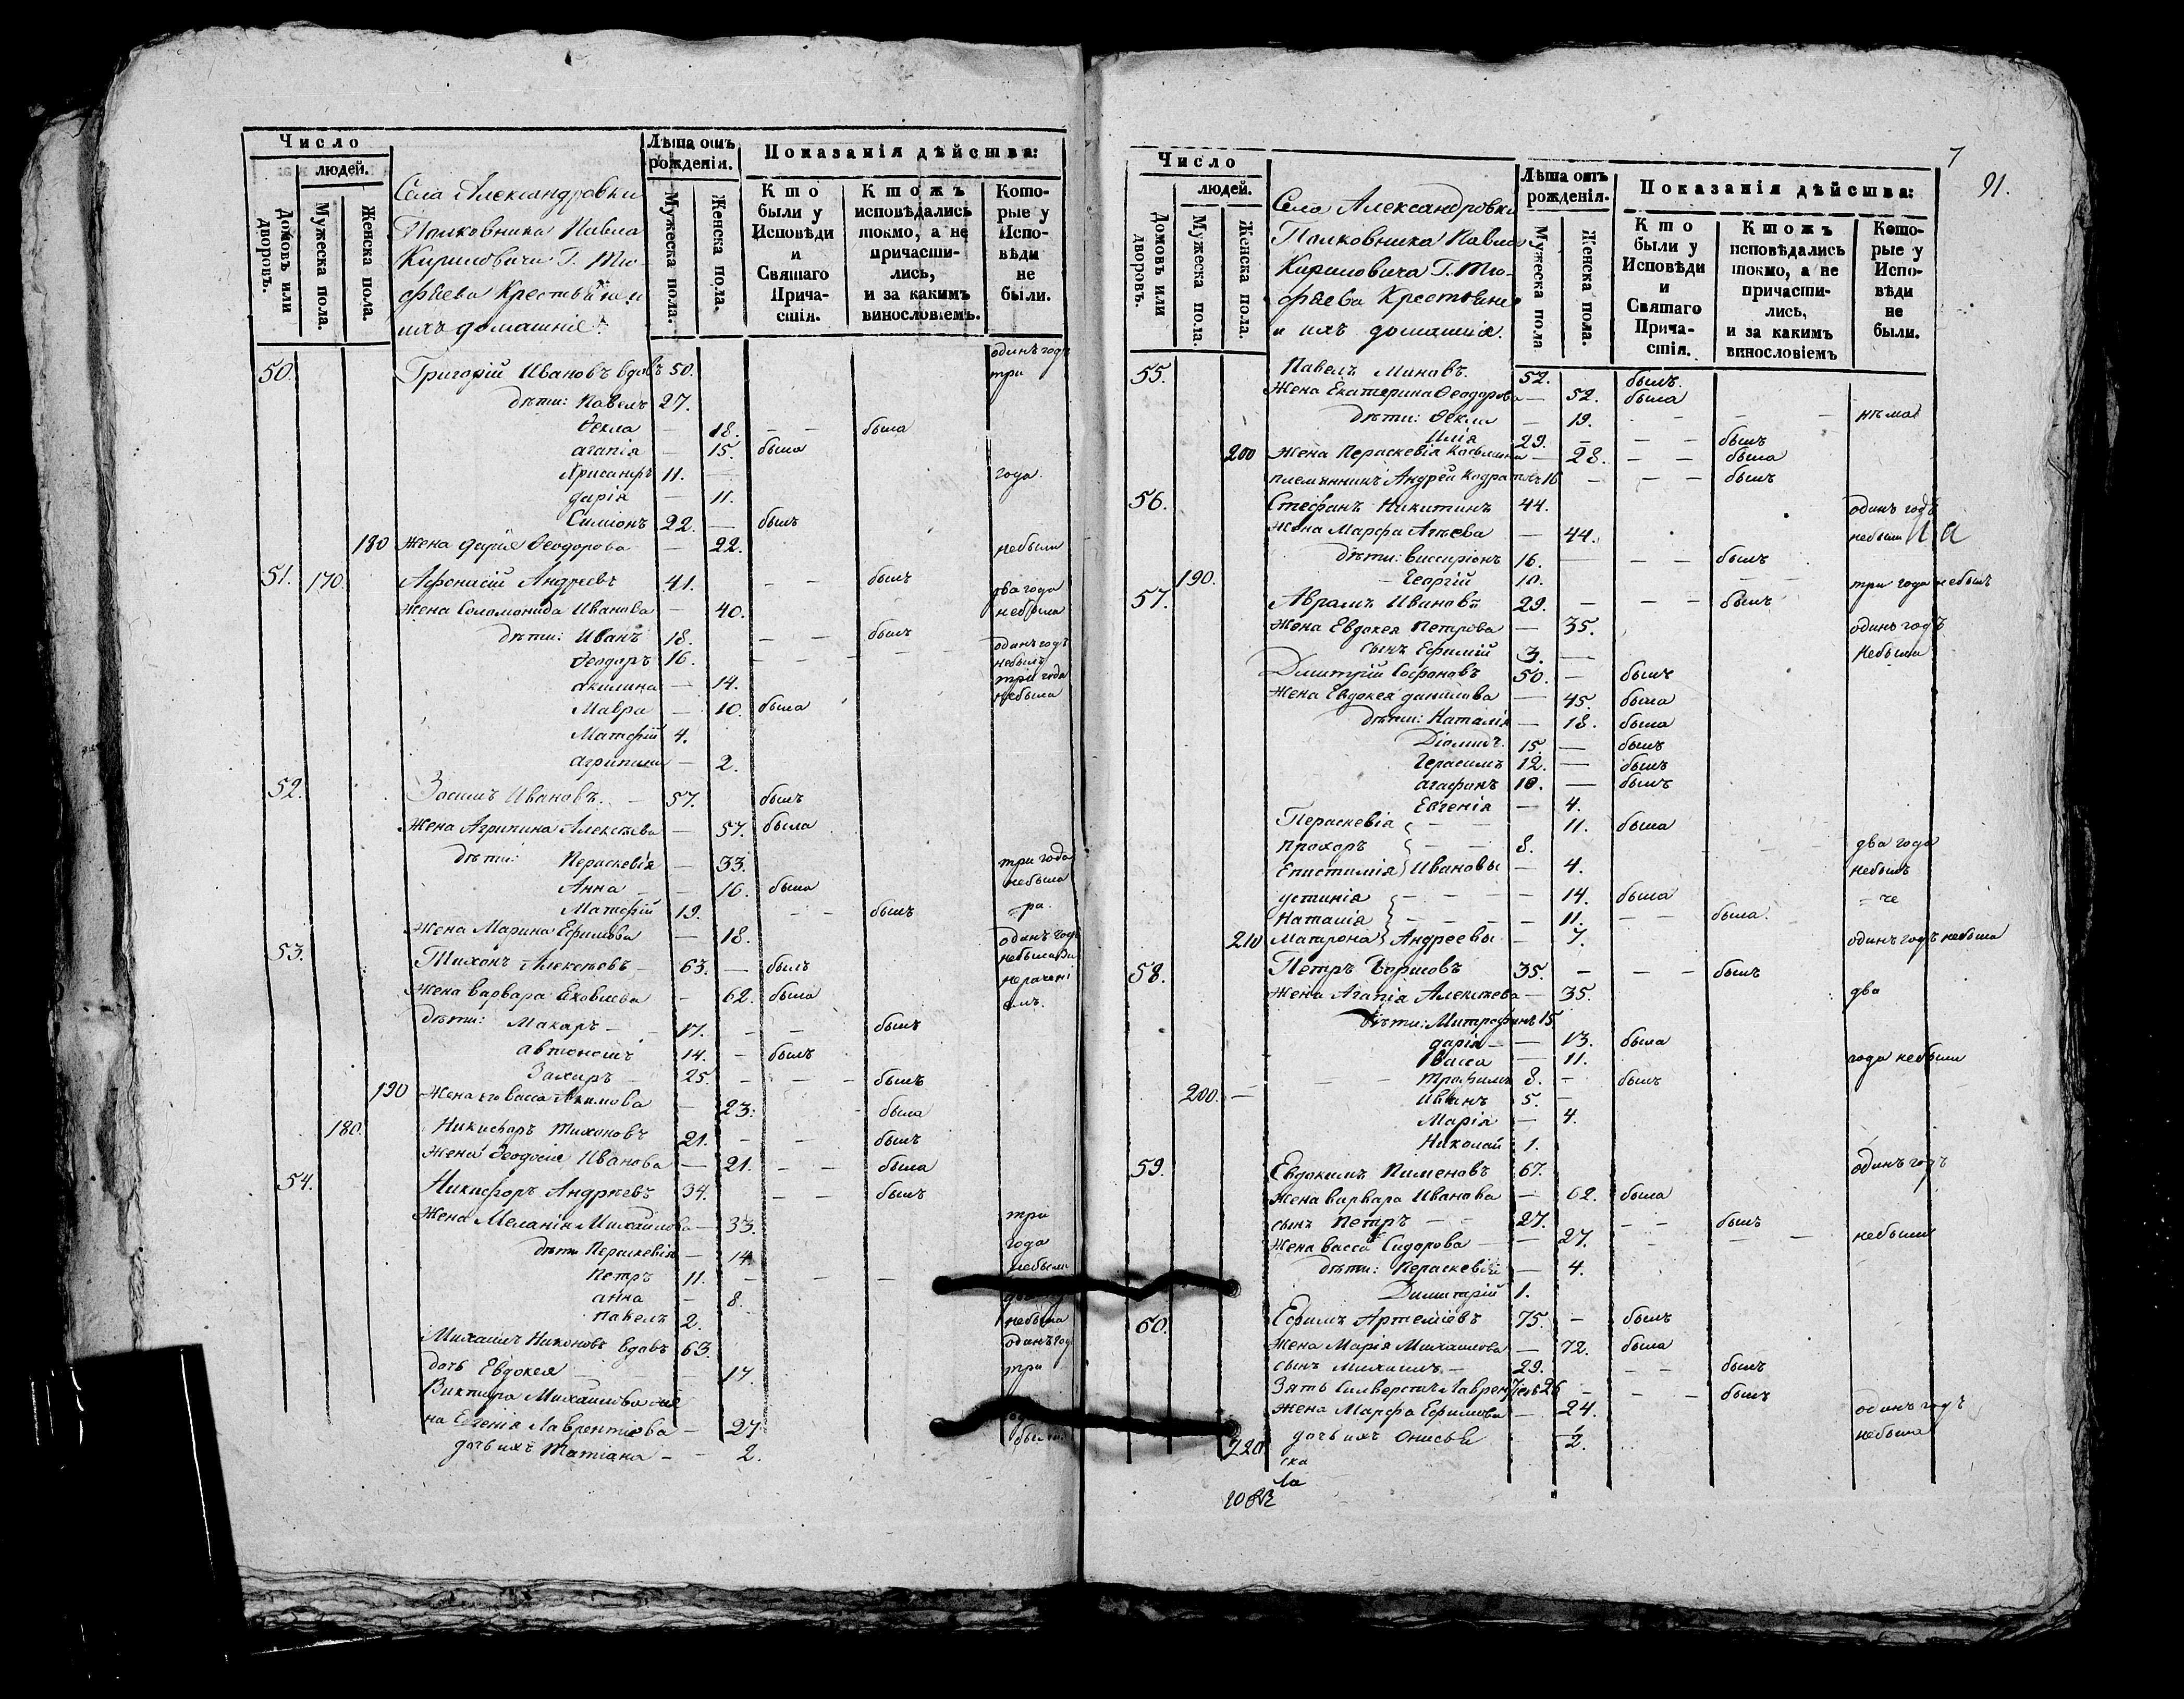 Число
людей.
Домовъ или дворовъ.
Мужеска пола.
Женска пола.
Села Александровки
Полковника Павла
Кириловича Г. Тю-
фяева Крестьяне и
ихъ домашніе:
Лѣта отъ рожденія.
Мужеска пола.
Женска пола.
Показанія дѣйства:
Кто были у Исповѣди и Святаго Прича- стія.
Ктожъ исповѣдались токмо, а не причасти- лись, и за какимъ винословіемъ.
Кото- рые у Испо- вѣди не были.
50. Григорій Ивановъ вдовъ 50. одинъ годъ
три
дѣти: Павелъ 27.
Ѳекла — 18. — — была
агапія — 15. была
Хрисанфъ 11. — года
дарія — 11.
Симіонъ 22. — былъ
180 жена дарія Ѳеодорова — 22. небыли
51. 170. Афонасій Андреевъ 41. — — былъ
два года
жена Соломонида Иванова — 40. небыла
дѣти: Иванъ 18. — — былъ
одинъ годъ
Ѳеодоръ 16. — — — небылъ
три года
акилина — 14. небыла
Мавра — 10. была
Матфій 4.
агрипина — 2.
52. Зосимъ Ивановъ. — 57. былъ
жена Агрипина Алексѣева — 57. была
дѣти: Пераскевія — 33. три года
небыла
Анна — — 16. была
Матфій 19. — — былъ
жена Марина Ефимова — 18. одинъ годъ
53. Тихонъ Алексѣевъ — 63. — былъ
жена варвара Яковлева — 62. была
дѣти: Макаръ — 17. — — былъ
автономъ 14. — былъ
Захаръ 25. — — — былъ
190 жена его васса Акимова — 23. — была
180. Никифоръ Тихоновъ 21. — — былъ
жена Ѳеодосія Иванова — 21. — — была
54. Никифоръ Андреевъ 34. — — былъ
жена Меланія Михайлова — 33. три
дѣти Пераскевія — 14. года
Петръ 11. — — — небыли
анна — 8.
павелъ 2. небыла
Михаилъ Никоновъ вдовъ 63. одинъ годъ
дочь Евдокея — — — 17. три
Виктора Михайлова же-
на Евгенія Лаврентіева — 27.
дочь ихъ Татіана — — 2.
7
91.
Число
людей.
Домовъ или дворовъ.
Мужеска пола.
Женска пола.
Села Александровки
Полковника Павла
Кириловича Г. Тю-
фяева Крестьяне
и ихъ домашнія.
Лѣта отъ рожденія.
Мужеска пола
Женска пола.
Показанія дѣйства:
Кто были у Исповѣди и Святаго Прича- стія.
Ктожъ исповѣдались токмо, а не причасти- лись, и за какимъ винословіемъ
Кото- рые у Испо- вѣди не были.
55. Павелъ Миновъ. 52. былъ.
жена Екатерина Ѳеодорова — 52. была
дѣти: Ѳекла — 19. — — — нѣмая
Илія 29. — — — былъ
200 жена Пераскевія Косьмина — 28. — — была
племянникъ Андрей Кодратовъ 16 — — — былъ
56. Стефанъ Никитинъ 44. одинъ годъ
жена Марфа Агѣева — 44. небыли
дѣти: виссаріонъ 16. — — — былъ
190. Георгій 10. три года небылъ
57. Аврамъ Ивановъ 29. — — — былъ
жена Евдокея Петрова — 35. одинъ годъ
сынъ Ефимій 3. — небыла
Димитрій Софоновъ 50. — былъ
жена Евдокея данилова — 45. была
дѣти: Наталія — 18. была
Діомидъ. 15. — былъ
Герасимъ 12. — былъ
агафонъ 10. — былъ
Евгенія — 4.
Пераскевія — — 11. была
прохоръ — — 8. два года
Епистимія Ивановы — 4. небылъ
устинія — — — 14. была
Наталія — — — — 11. — — была.
210 Матрона Андреевы — 7. одинъ годъ небыла
58. Петръ Борисовъ 35. — — — былъ
жена Агапія Алексѣева — 35. два
дѣти: Митрофанъ 15
дарія — — 13. была
Васса — 11. года небыли
трофимъ 8. — былъ
200. — Иванъ 5. —
Марія — 4.
Николай 1.
59. Евдокимъ Пименовъ 67. одинъ годъ
жена варвара Иванова — 62. была
сынъ Петръ — — 27. — — былъ
жена васса Сидорова — — 27. — — — небыли
дѣти: Пераскевія — 4.
Димитрій 1.
60. Ефимъ Артеміевъ 75. — былъ
жена Марія Михайлова — 72. была
сынъ михаилъ — 29. — — былъ
Зять Силверстъ Лаврентіевъ 26 — — — былъ
жена Марфа Ефимова — 24. одинъ годъ
220 дочь ихъ Онисья 2. небыла